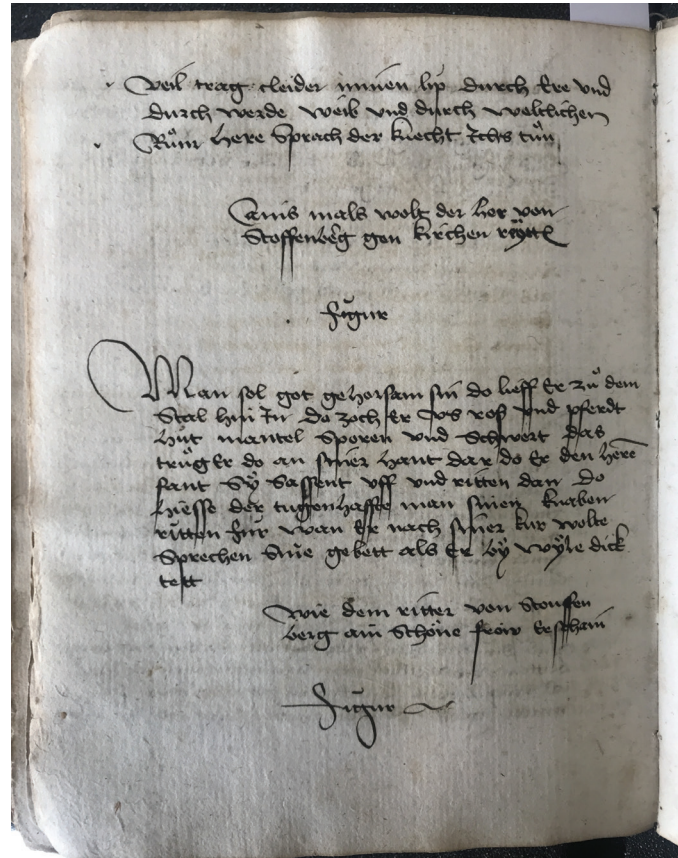 weil trag cleider minen lip durch Ere vnd
durch werde weib vnd durch weltlichen
Rům Here Sprach der knecht Ichts tůn
Ainis mals wolt der her von
Stoffenberg gen kirchen
figur
Man sol got gehorsam sin do lieff Er zů dem
Stal hin In do zoch Er vs roß vnd pferdt
Hůt mantel Sporen vnd Schwert das
trůg Er do an siner hant dar do Er den here
fant Sy Sassent vff vnd ritten dan do
hiesse der tugenhaffte man sinen knaben
ritten für wan Er nach siner kur wolte
Sprechen Sine gebett als Er by wyle dick
tett
wie dem ritter von Stouffen
berg ain Schöne frow Erschain
figur